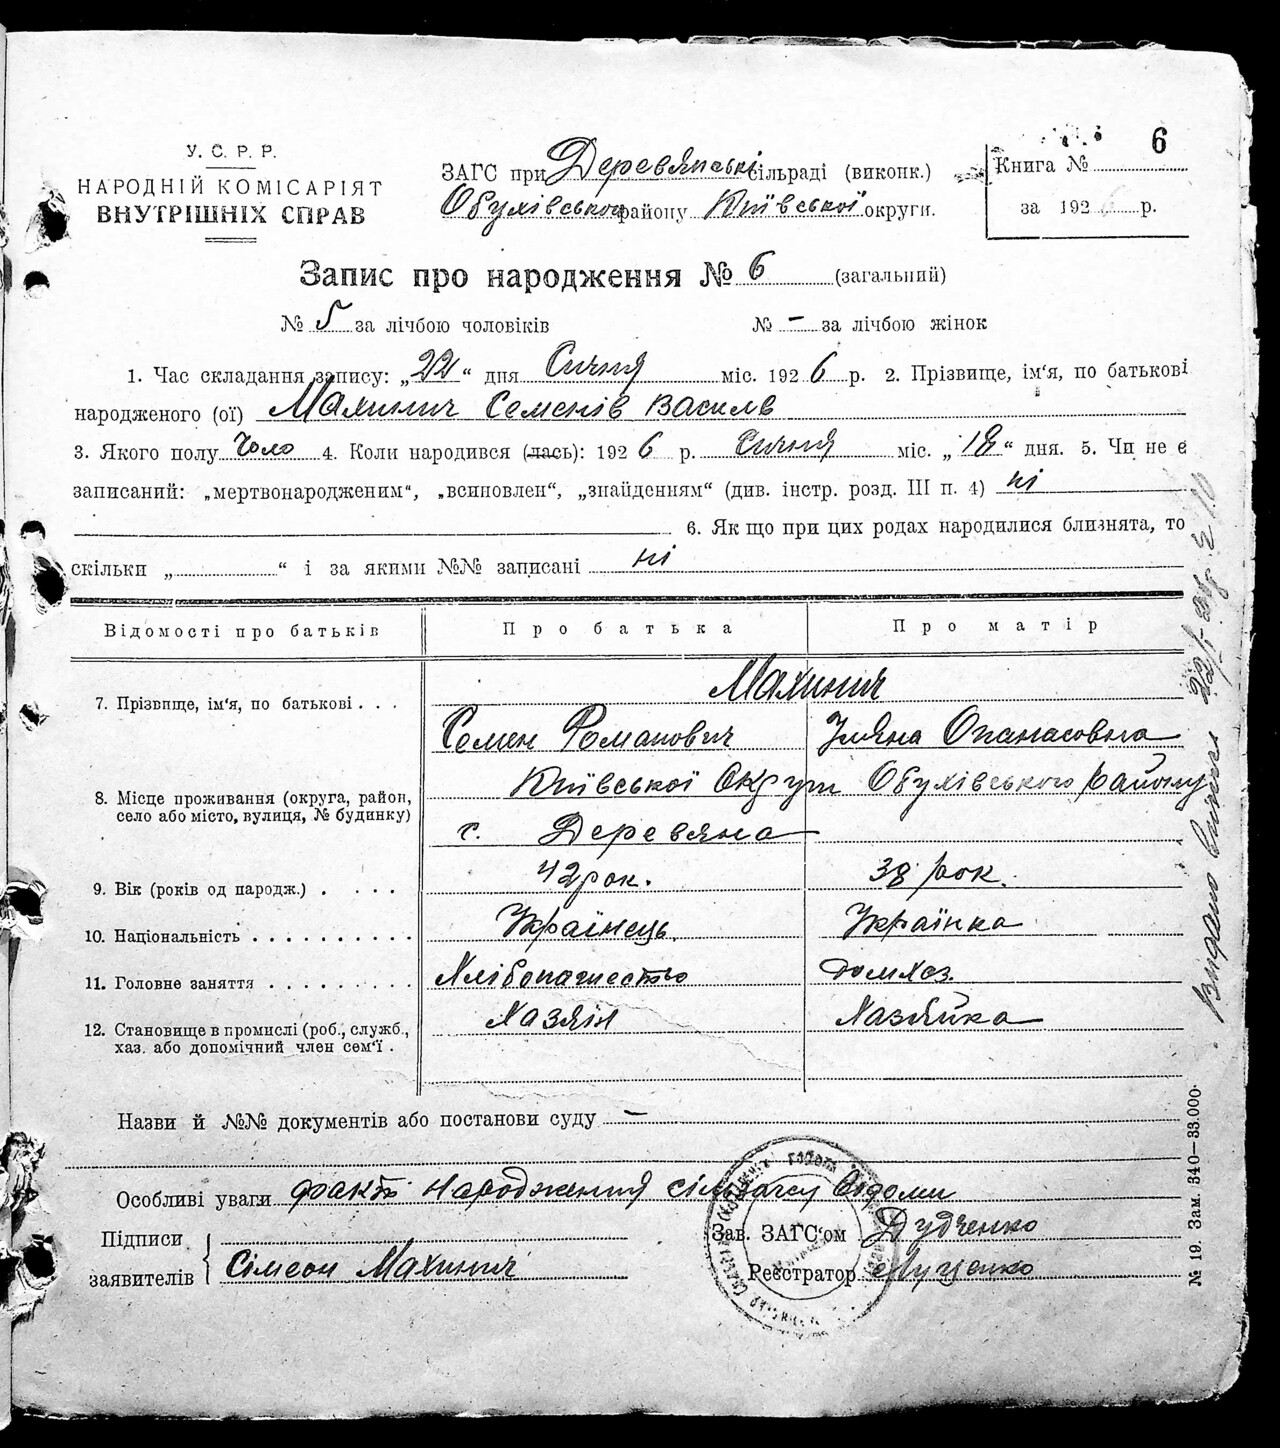 6
У. С. Р. Р.
НАРОДНІЙ КОМІСАРІЯТ
ВНУТРІШНІХ СПРАВ
ЗАГС при Деревянські сільраді (виконк.)
Обухівського району Київської округи.
Книга №
за 1926 р.
Запис про народження № 6 (загальний)
№ 5 за лічбою чоловіків № – за лічбою жінок
1. Час складання запису: „22“ дня Січня міс. 1926 р. 2. Прізвище, ім'я, по батькові
народженого (ої) Махинич Семенів Василь
3. Якого полу Чоло 4. Коли народився (лась): 1926 р. Січня міс. „18“ дня. 5. Чи не є
записаний: „мертвонародженим“, „всиновлен“, „знайденням“ (див. інстр. розд. III п. 4) ні
6. Як що при цих родах народилися близнята, то
скільки „ “ і за якими №№ записані ні
Відомості про батьків Про батька Про матір
Махинич
7. Прізвище, ім'я, по батькові . . .
Семен Романович Уляна Опанасовна
8. Місце проживання (округа, район,
село або місто, вулиця, № будинку)
Київської Округи Обухівського району
с. Деревяна
9. Вік (років од народж.) . . . . 42 рок. 38 рок.
10. Національність . . . . . . . . . . Українець Українка
11. Головне заняття . . . . . . . . . Хлібопашество домхоз.
12. Становище в промислі (роб., служб.,
хаз. або допомічний член сем'ї .
Хазяін Хазяйка
Назви й №№ документів або постанови суду –
Особливі уваги факт народження сільзагсу відоми
Підписи
заявителів
Сімеон Махинич
Зав. ЗАГС'ом Дудченко
Реєстратор Луценко
№ 19. Зам. 340—33.000.
Видано